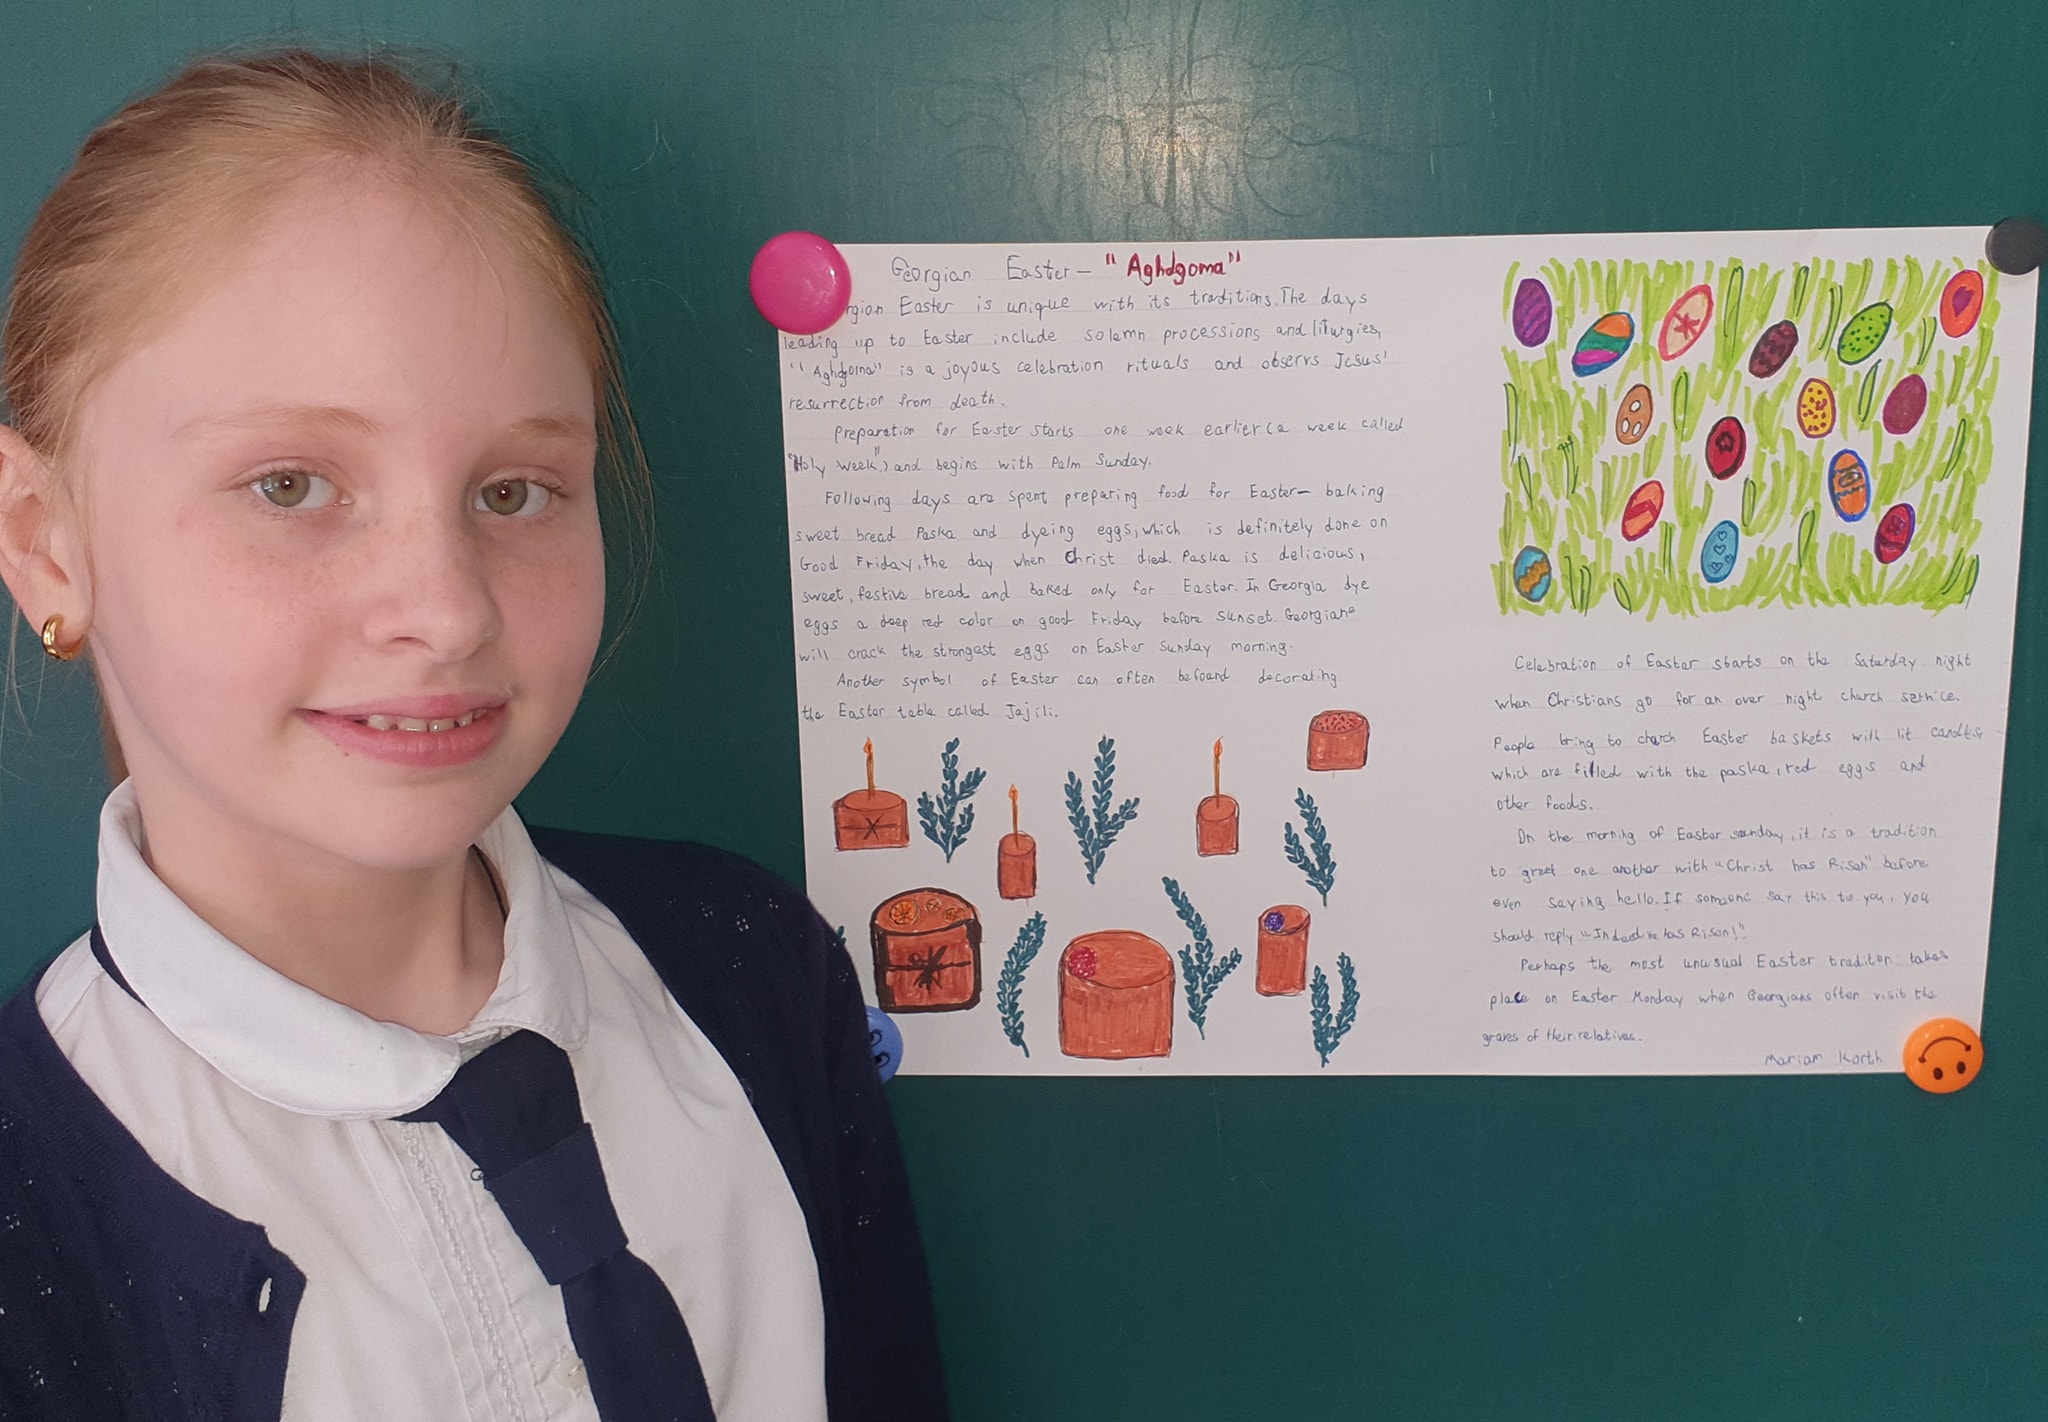 Georgian Easter— "Aghdgoma"
rgian Easter is unique with its traditions. The days
leading up to Easter include solemn processions and liturgies,
"Aghdgoma" is a joyous celebration rituals and observs Jesus'
resurrection from death.
preparation for Easter starts one week earlier (a week called
"Holy week",) and begins with Palm Sunday.
Following days are spent preparing food for Easter— baking
sweet bread Paska and dyeing eggs, which is definitely done on
Good Friday, the day when Christ died. Paska is delicious,
sweet, festive bread and baked only for Easter. In Georgia dye
eggs a deep red color on good Friday before sunset. Georgians
will crack the strongest eggs on Easter Sunday morning.
Another symbol of Easter can often befound decorating
the Easter table called Jejili.
Celebration of Easter starts on the Saturday night
when Christians go for an over night church service.
People bring to church Easter baskets with lit candles,
which are filled with the paska, red eggs and
other foods.
On the morning of Easter sunday, it is a tradition
to greet one another with "Christ has Risen" before
even saying hello. If someone say this to you, you
should reply "Indeed he has Risen!"
Perhaps the most unusual Easter tradition takes
place on Easter Monday when Georgians often visit the
graves of their relatives.
Mariam Korth